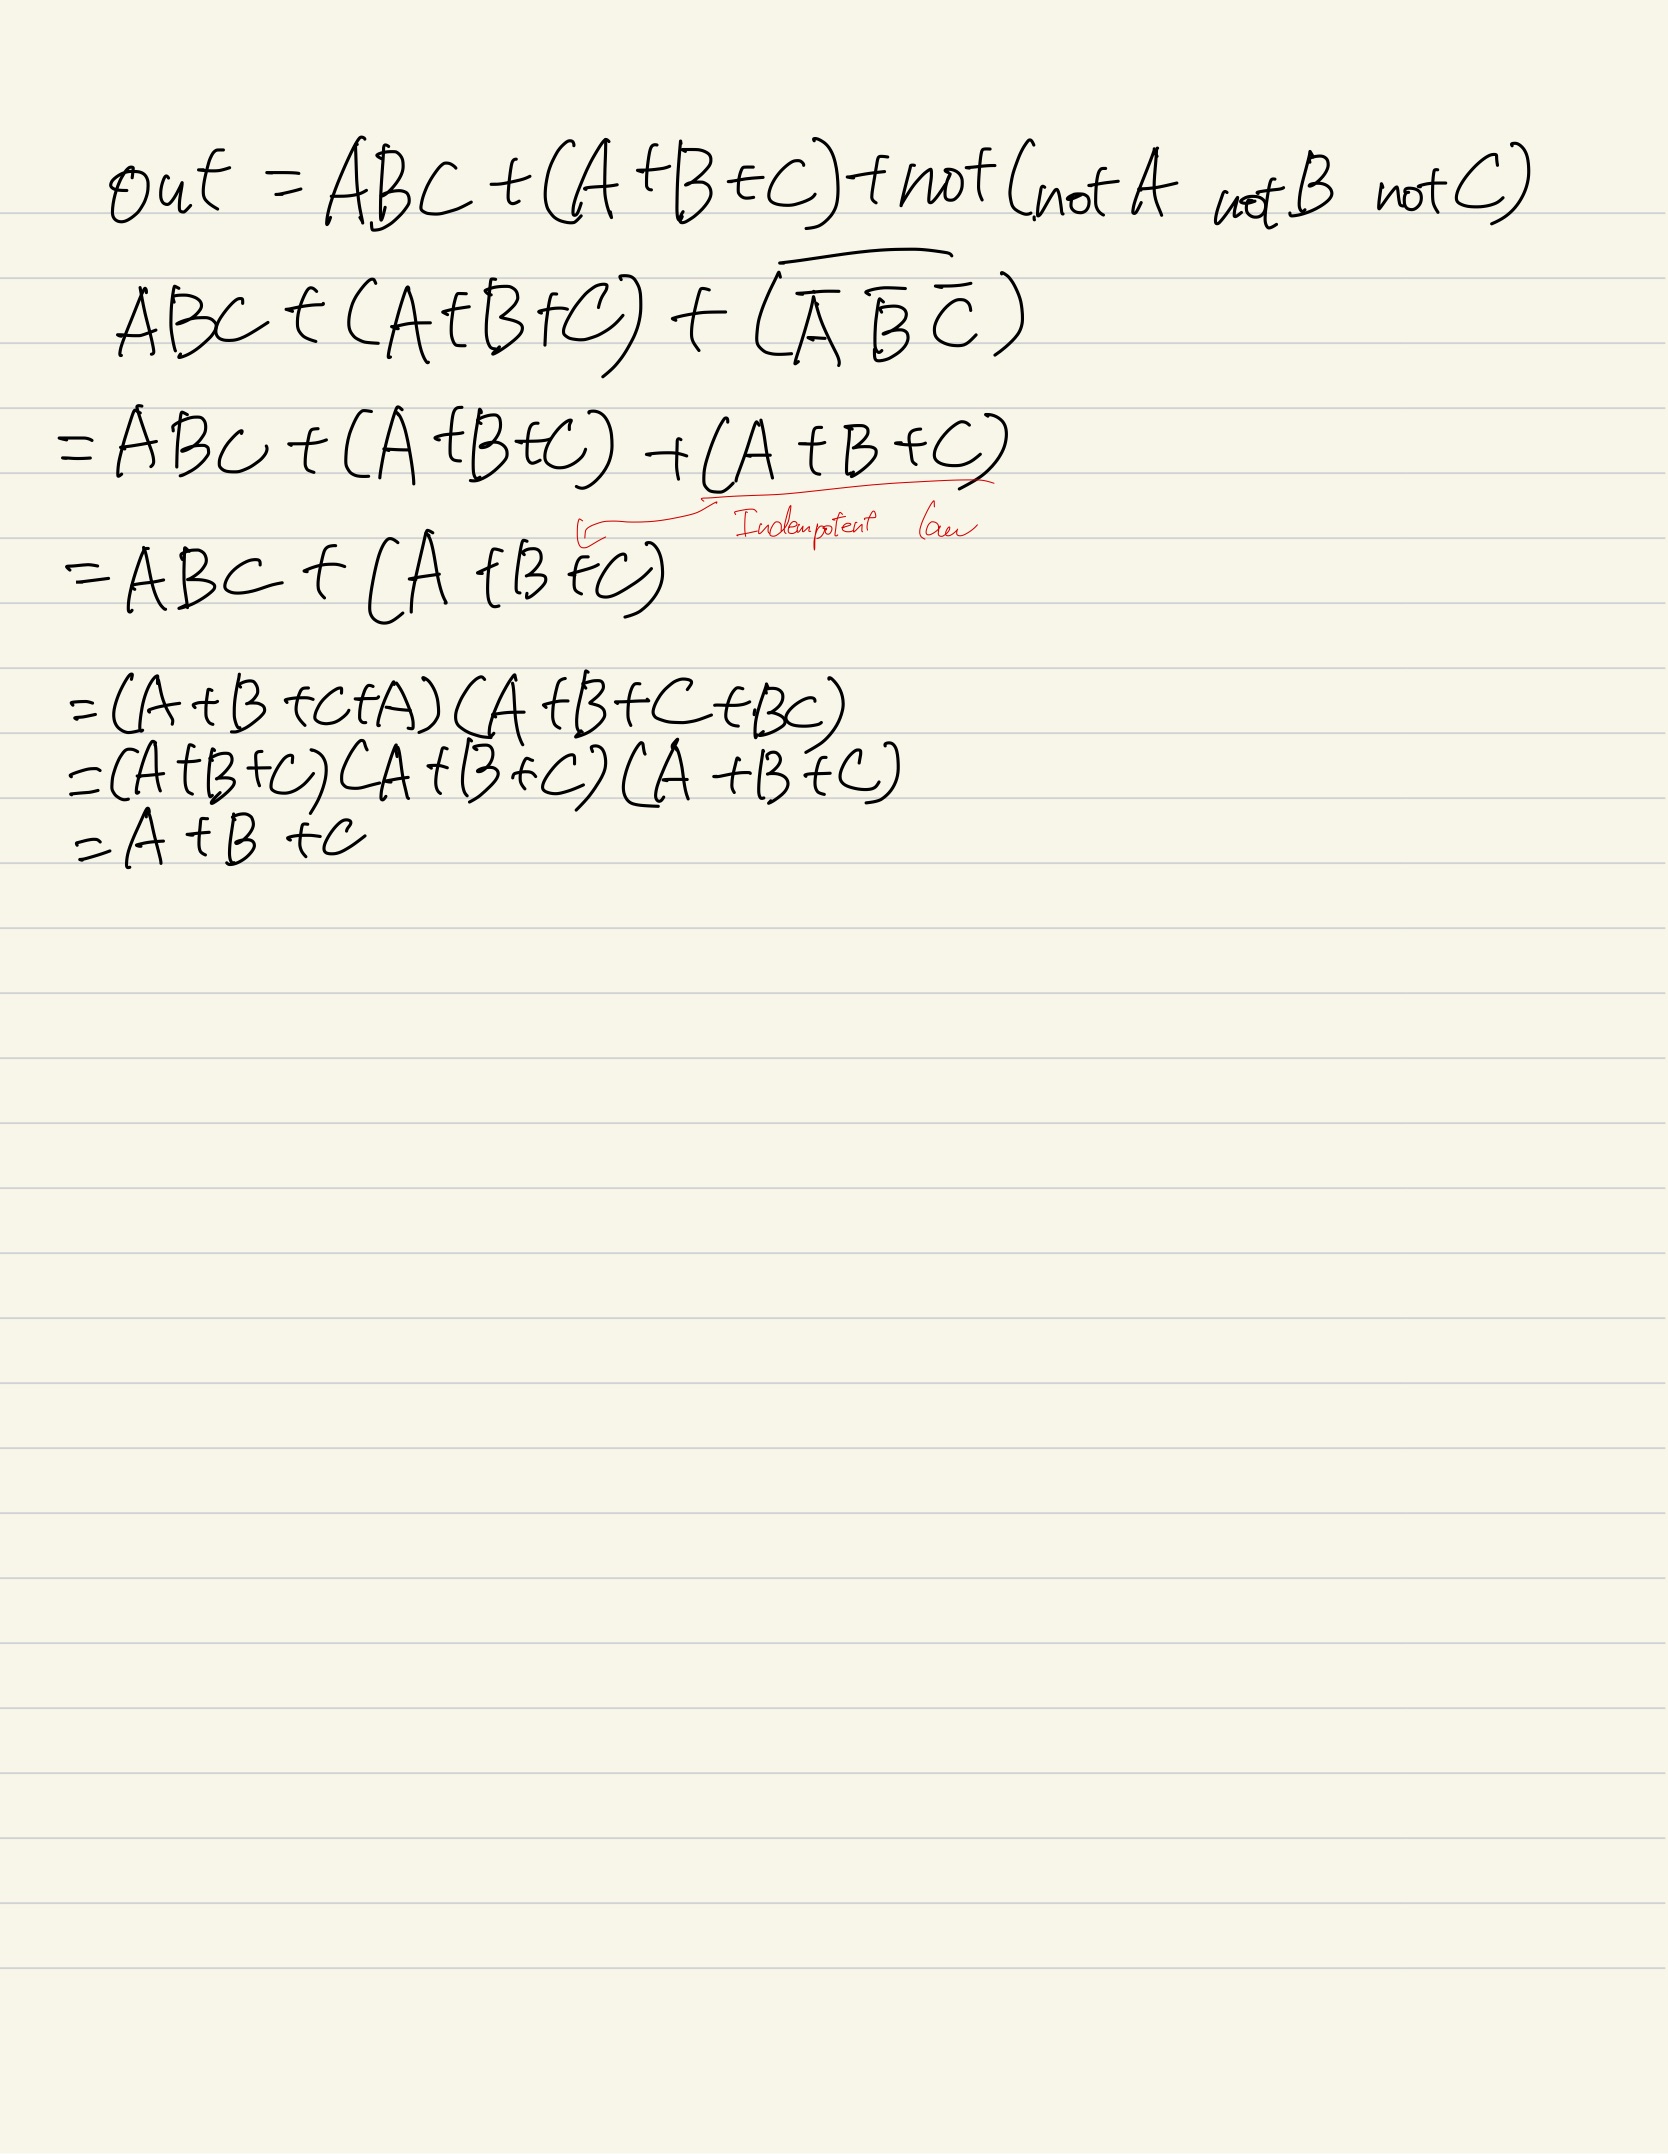 out = ABC + (A+B+C) + not(not A not B not C)
ABC + (A+B+C) + (A̅ B̅ C̅)̅
= ABC + (A+B+C) + (A+B+C)
Indempotent law
= ABC + (A+B+C)
= (A+B+C+A)(A+B+C+BC)
= (A+B+C)(A+B+C)(A+B+C)
= A+B+C